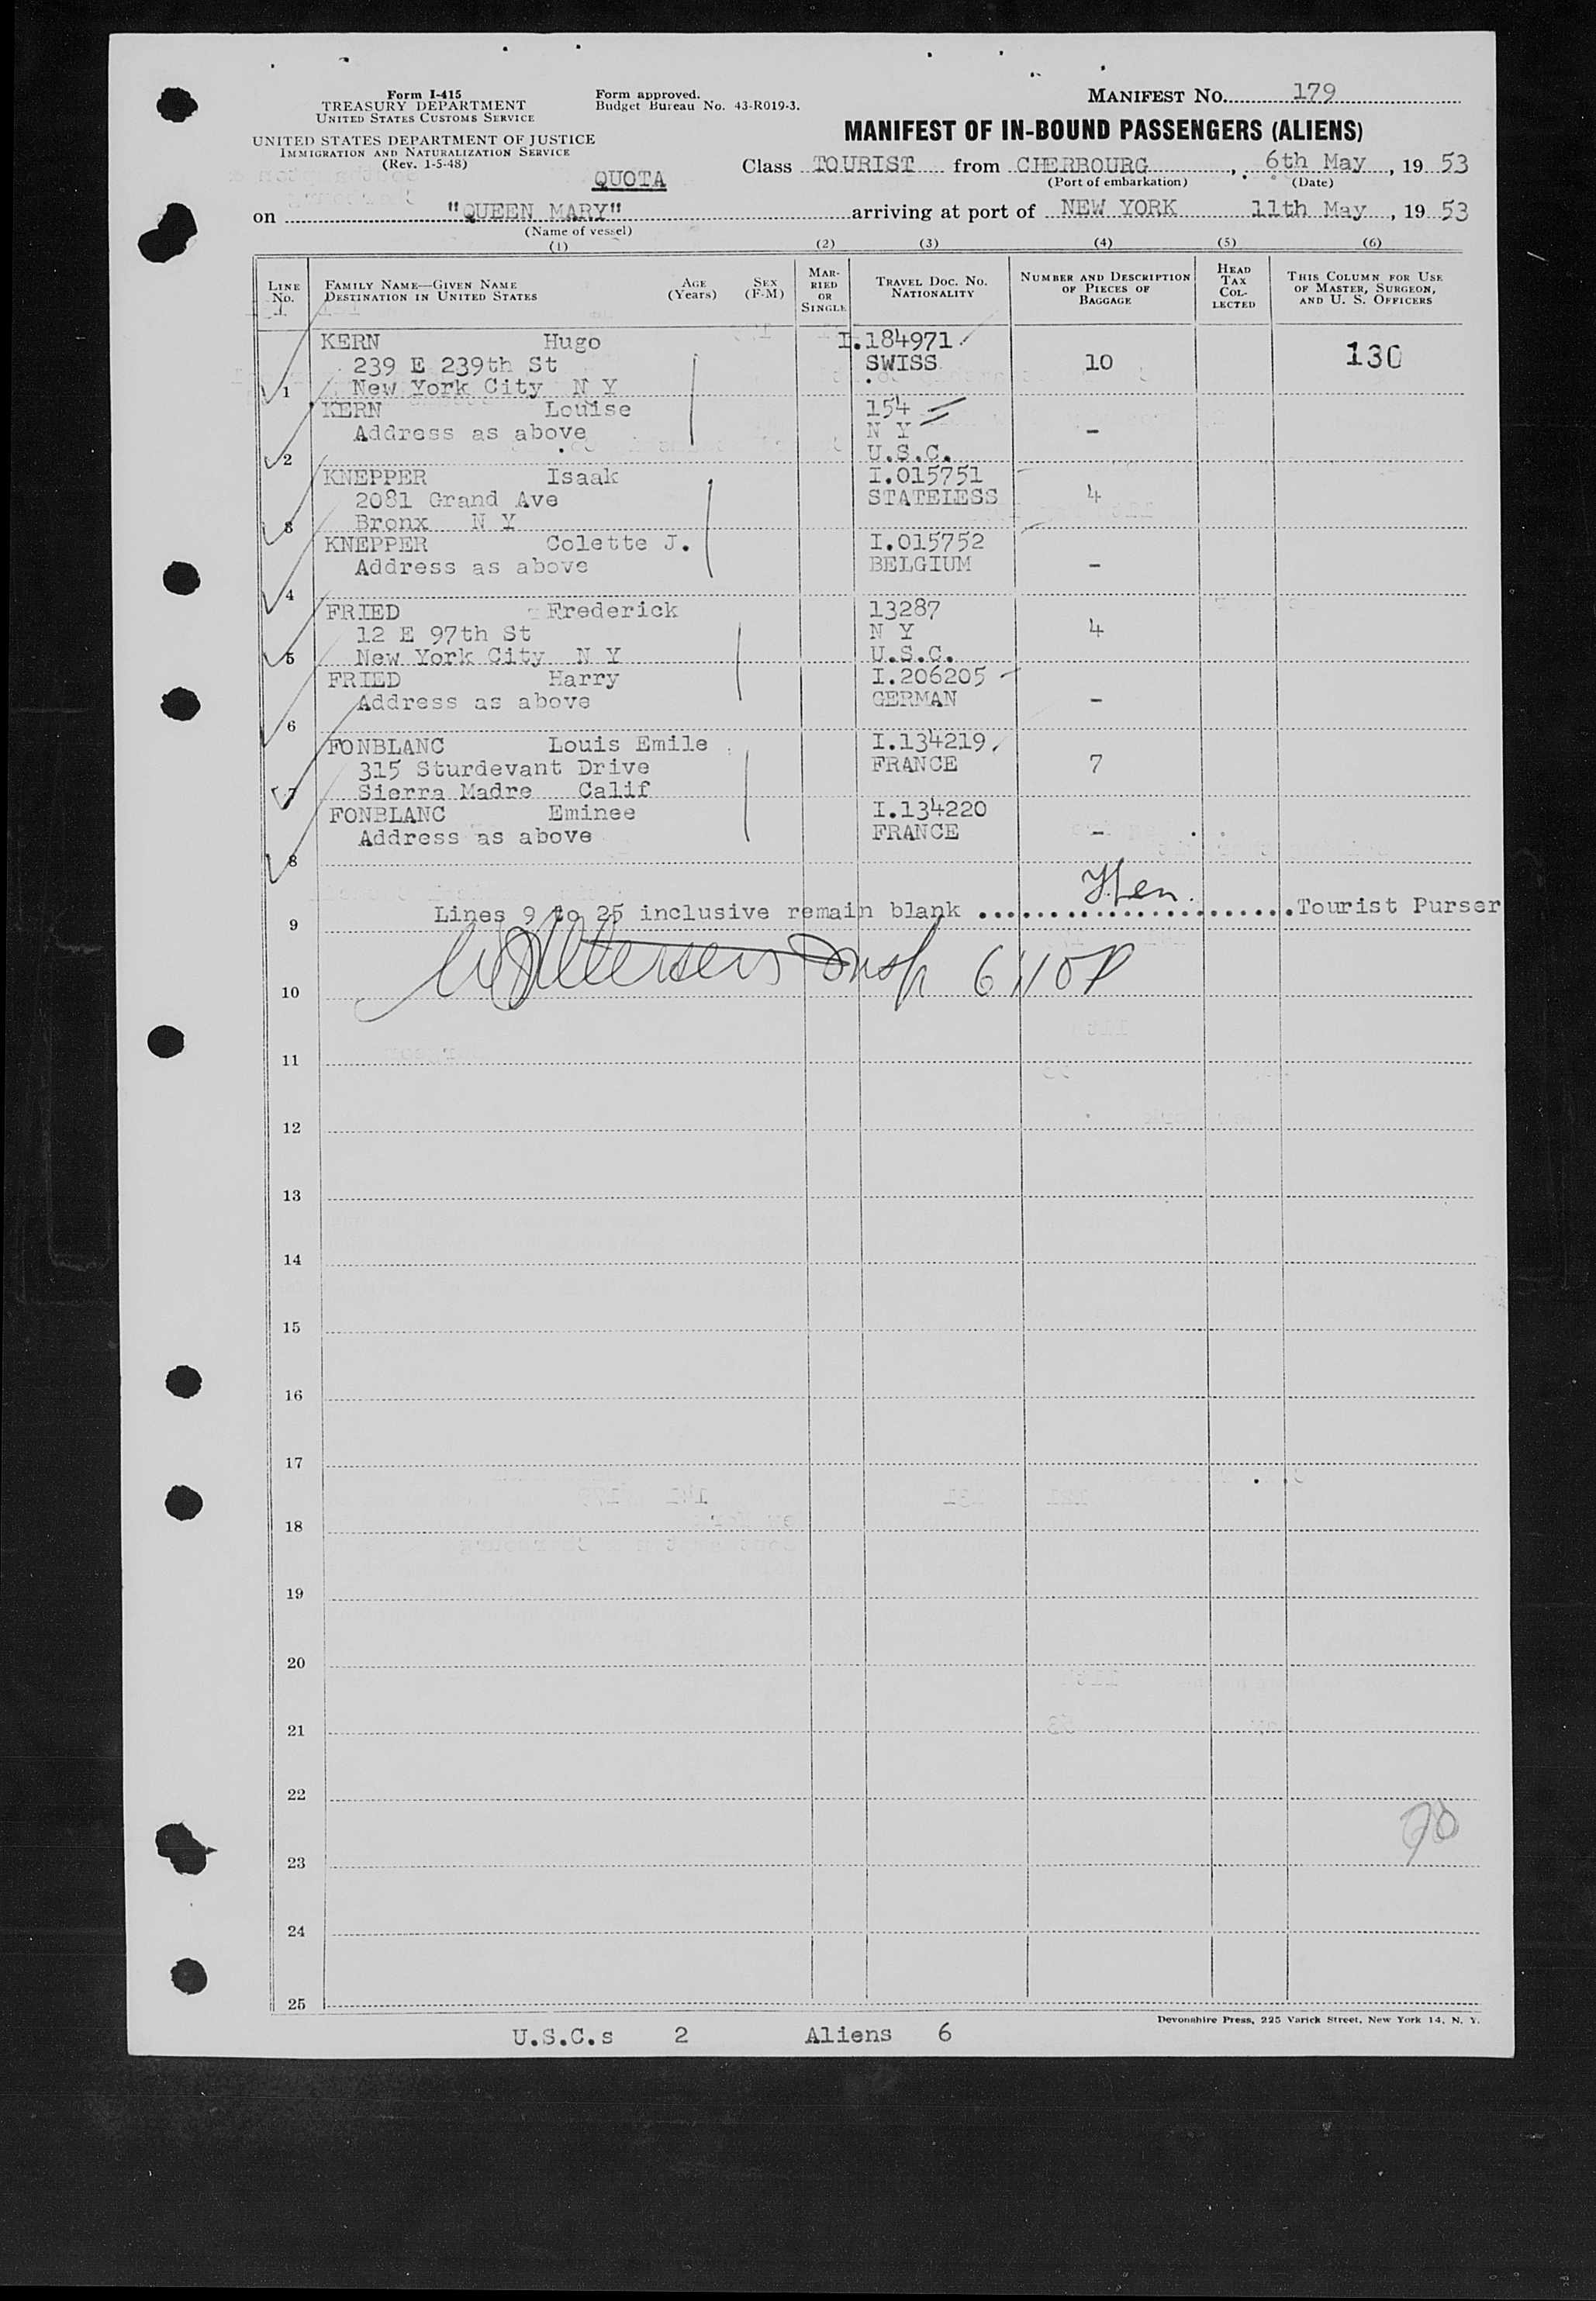 Form I-415
TREASURY DEPARTMENT
UNITED STATES CUSTOMS SERVICE
UNITED STATES DEPARTMENT OF JUSTICE
IMMIGRATION AND NATURALIZATION SERVICE
(Rev. 1-5-48)
Form approved.
Budget Bureau No. 43-R019-3.
MANIFEST NO. 179
MANIFEST OF IN-BOUND PASSENGERS (ALIENS)
QUOTA
Class TOURIST from CHERBOURG, 6th May, 19 53
(Port of embarkation) (Date)
on "QUEEN MARY" arriving at port of NEW YORK 11th May, 19 53
(Name of vessel)
(1) (2) (3) (4) (5) (6)
LINE NO.
FAMILY NAME—GIVEN NAME
DESTINATION IN UNITED STATES
AGE (Years)
SEX (F-M)
MARRIED OR SINGLE
TRAVEL DOC. NO.
NATIONALITY
NUMBER AND DESCRIPTION OF PIECES OF BAGGAGE
HEAD TAX COLLECTED
THIS COLUMN FOR USE OF MASTER, SURGEON, AND U. S. OFFICERS
KERN Hugo I.184971
239 E 239th St SWISS 10 130
1 New York City N Y
KERN Louise 154
Address as above N Y -
2 U.S.C.
KNEPPER Isaak I.015751
2081 Grand Ave STATELESS 4
3 Bronx N Y
KNEPPER Colette J. I.015752
Address as above BELGIUM -
4
FRIED Frederick 13287
12 E 97th St N Y 4
5 New York City N Y U.S.C.
FRIED Harry I.206205
Address as above GERMAN -
6
FONBLANC Louis Emile I.134219
315 Sturdevant Drive FRANCE 7
7 Sierra Madre Calif
FONBLANC Eminee I.134220
Address as above FRANCE -
8
9 Lines 9 to 25 inclusive remain blank ........................Tourist Purser
10
11
12
13
14
15
16
17
18
19
20
21
22
23
24
25
Devonshire Press, 225 Varick Street, New York 14, N. Y.
U.S.C.s 2 Aliens 6